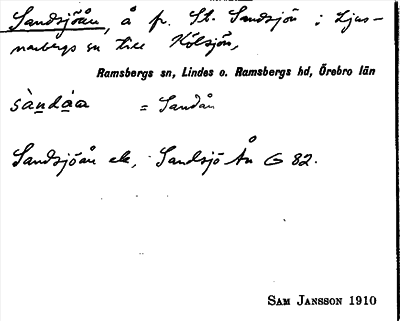 Sandsjöån, å fr. St. Sandsjön i Ljus-
narbergs sn till Kölsjön,
Ramsbergs sn, Lindes o. Ramsbergs hd, Örebro län
sàndåa = Sandån
Sandsjöån ek, Sandsjö Ån G 82.
SAM JANSSON 1910